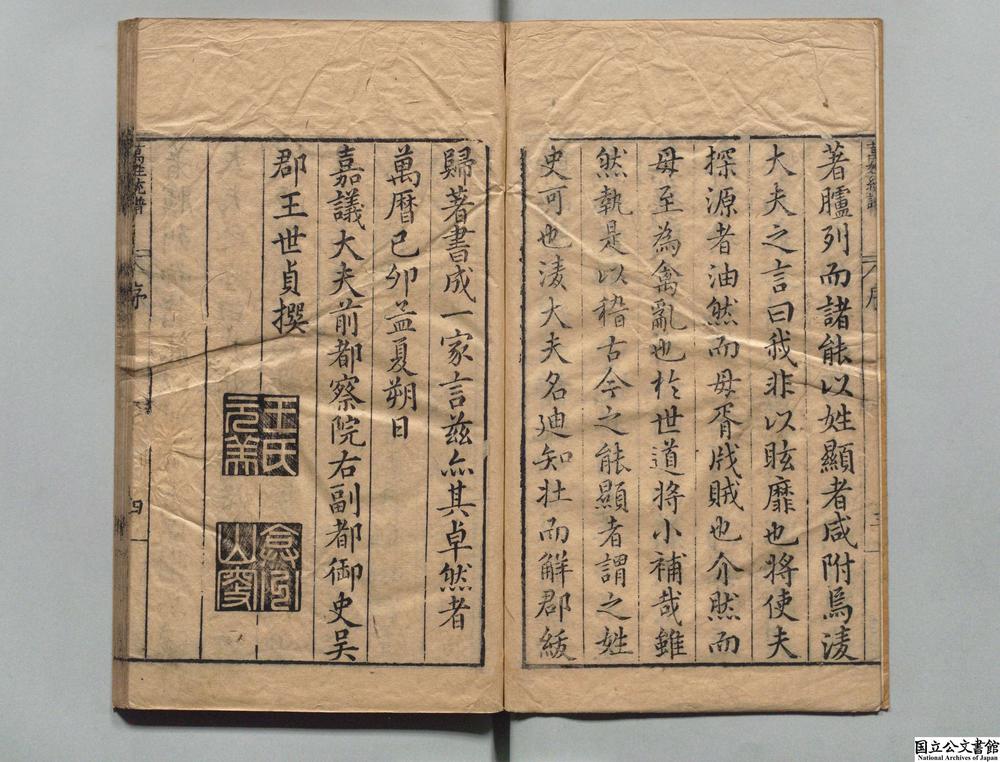 著臚列而諸能以姓顯者咸附焉淩
大夫之言曰我非以眩靡也將使夫
探源者油然而毋胥戕賊也介然而
毋至為禽亂也於世道將小補哉雖
然執是以稽古今之能顯者謂之姓
史可也淩大夫名廸知壮而解郡紱
歸著書成一家言茲亦其卓然者
萬曆己夘孟夏朔日
嘉議大夫前都察院右副都御史吴
郡王世貞撰
王氏元美
萬姓統譜
序
四
萬姓統譜
序
三
国立公文書館
National Archives of Japan